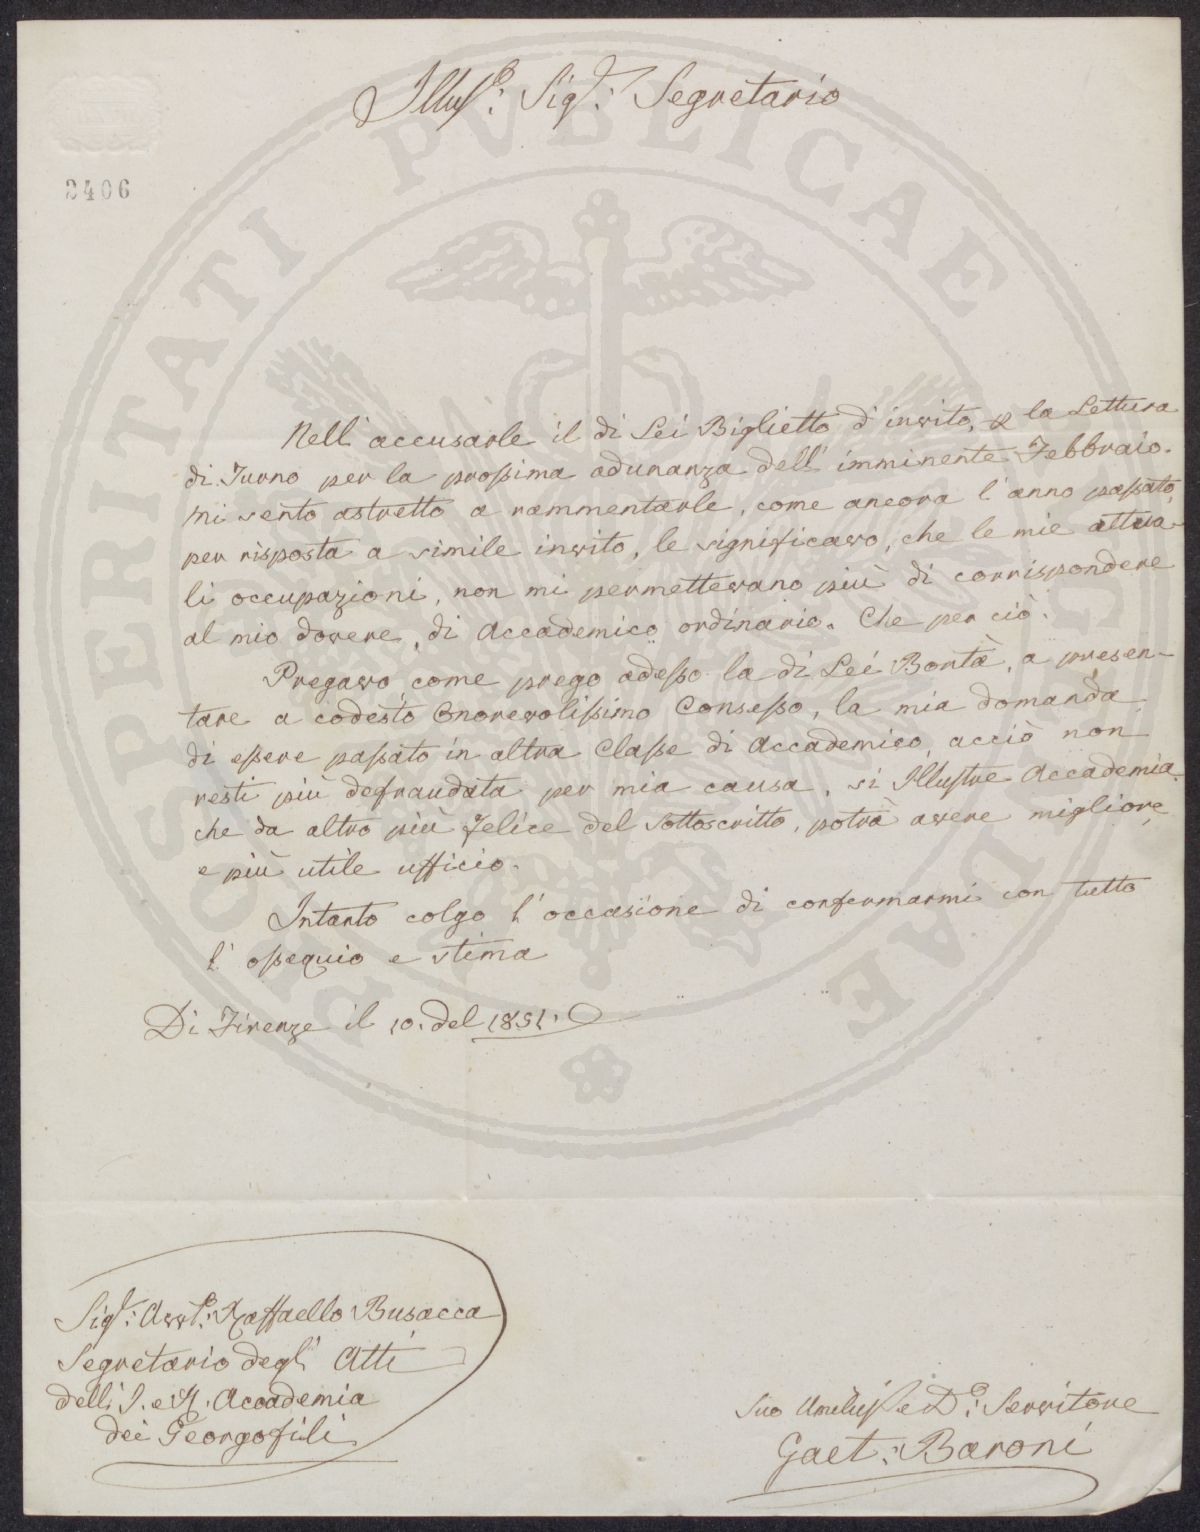 Illus.e: Sig.r: Segretario
2406
PROSPERITATI PUBLICAE AUGENDAE
Nell' accusarle il di Lei Biglietto d' invito, & la Lettura
di Turno per la prossima adunanza dell' imminente Febbraio.
Mi sento astretto a rammentarle, come ancora l' anno passato,
per risposta a simile invito, le significavo, che le mie attua-
li occupazioni, non mi permettevano più di corrispondere
al mio dovere, di Accademico ordinario. Che per ciò.
Pregavo, come prego adesso la di Lei Bontà, a presen-
tare a codesto Onorevolissimo Consesso, la mia domanda
di essere passato in altra Classe di Accademico, acciò non
resti più defraudata per mia causa, sì Illustre Accademia.
che da altro più felice del Sottoscritto, potrà avere migliore,
e più utile ufficio.
Intanto colgo l' occasione di confermarmi con tutto
l' ossequio e stima
Di Firenze il 10. del 1851.
Sig.r: Avv.to: Raffaello Busacca
Segretario degli Atti
dell' I. e R. Accademia
dei Georgofili
Suo Umiliss e D.o: Servitore
Gaet.: Baroni